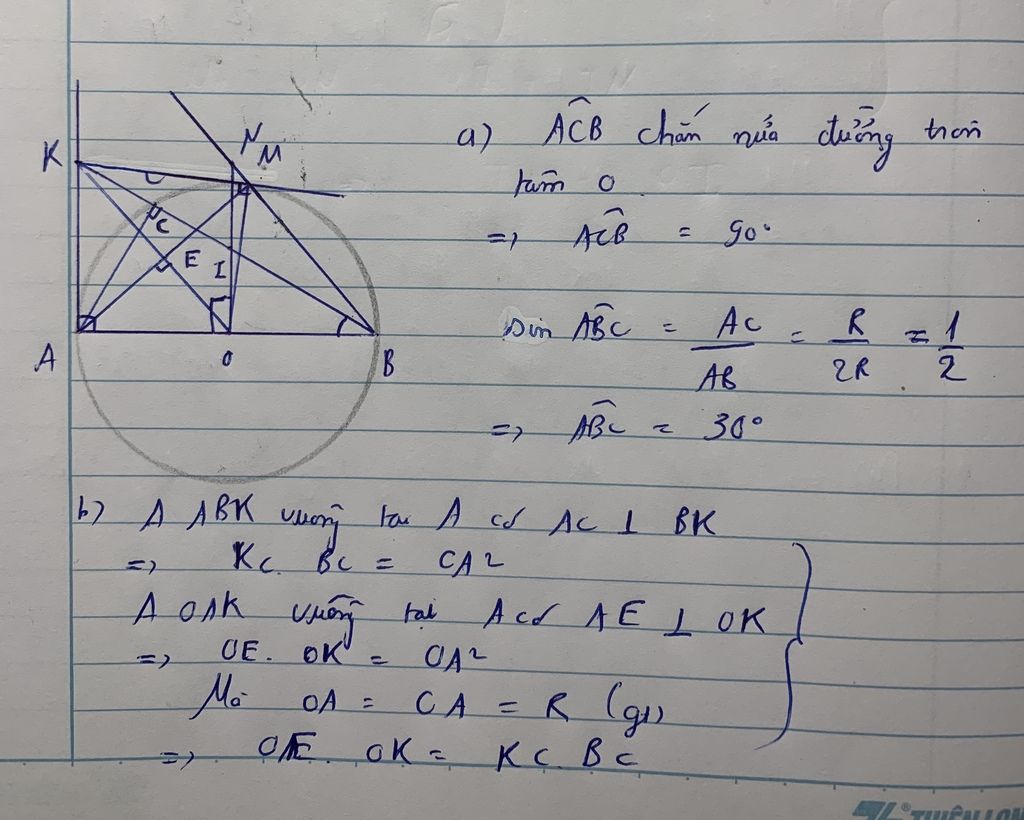 K
N
M
C
E
I
A
O
B
a) ACB chắn nửa đường tròn
tâm O
=> ACB = 90°
sin ABC = AC/AB = R/2R = 1/2
=> ABC = 30°
b) Δ ABK vuông tại A có AC ⊥ BK
=> KC. BC = CA²
Δ OAK vuông tại A có AE ⊥ OK
=> OE. OK = OA²
Mà OA = CA = R (gt)
=> OE. OK = KC. BC
THIÊN LON